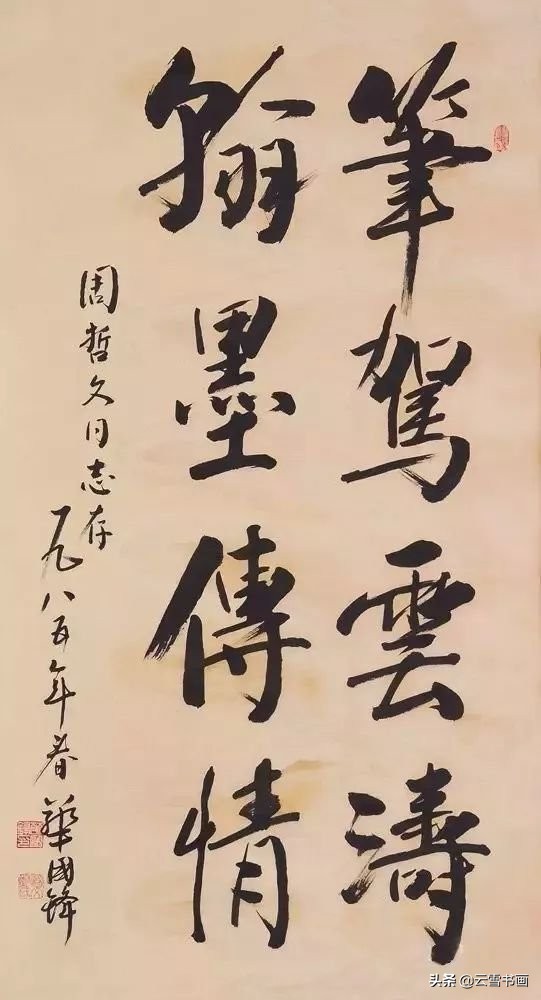 筆駕雲濤
翰墨傳情
周哲文同志存
一九八五年春 華國鋒
头条 @云雪书画